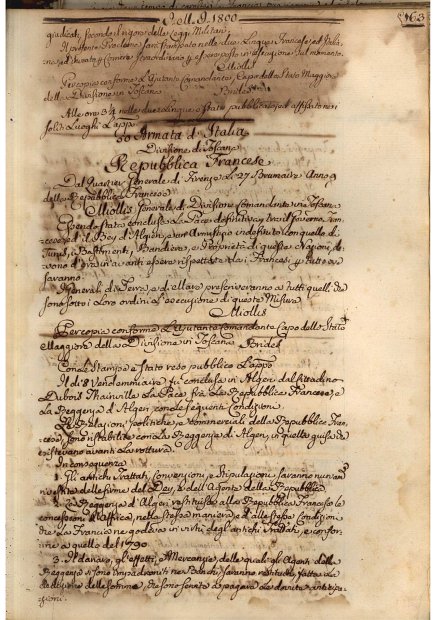 Dell. 9. 1800
163
giudicati, secondo il rigore delle Leggi Militari
Il presente Proclama sarà stampato nelle due Lingue Francese, ed Italiana
Miollis
Per copia conforme L'Ajutante Comandante, Capo dello Stato Maggiore
della Divisione in Toscana Bridel
Alle ore 3¼ nelle due Lingue è stato pubblicato ed affisso nei
soliti Luoghi L'app.
Armata d'Italia
Divisione di Toscana
Repubblica Francese
Dal Quartier Generale di Firenze li 27 Brumaire Anno 9
della Repubblica Francese
Miollis Generale di Divisione comandante in Toscana
Essendo stata conclusa la Pace definitiva tra il Governo Fran
cese ed il Bey d'Algeri, e un Armistizio indefinito con quello di
Tunis, i Bastimenti, Bandiera, e Proprietà di queste Nazioni, de
vono d'ora in avanti essere rispettate dai Francesi
saranno
I Generali di Terra, e di Mare prescriveranno a tutti quelli che
sono sotto i Loro ordini l'esecuzione di questa Misura
Miollis
Per copia conforme L'Ajutante Comandante Capo dello Stato
Maggiore della Divisione in Toscana Bridel
Con le Stampe è stato reso pubblico L'app.
Il dì 8 Vendemmiaire fu conclusa in Algeri dal Cittadino
Dubois Thainville la Pace frà La Repubblica Francese, e
La Reggenza d'Algeri con le seguenti Condizioni
Le Relazioni politiche, e commerciali della Repubblica Fran
cese, sono ristabilite con la Reggenza di Algeri, in quella guisa che
esistevano avanti la rottura.
In conseguenza
1. Gli antichi Trattati, Convenzioni, e Stipulazioni saranno nuovam.
rivestite delle firme del Dey, e dell'Agente della Repubblica
2. La Reggenza d'Algeri restituisce alla Repubblica Francese le
concessioni d'Affrica, nella stessa maniera, ed alle stesse Condizioni
che La Francia ne godeva in virtù degli antichi Trattati, e confor
me a quello del 1790.
3. Il danaro, gl'effetti, e Mercanzie, delle quali gli Agenti della
Reggenza si sono impadroniti nei Banchi, saranno restituiti, fatta La
deduzione delle somme, che sono servite a pagare